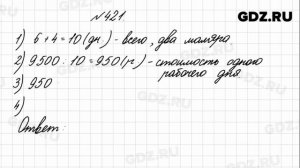 GDZ.RU
№421
1) 6+4=10(дн) - всего, два маляра.
2) 9500:10=950(г) - стоимость одного
рабочего дня
3) 950
4)
Ответ: